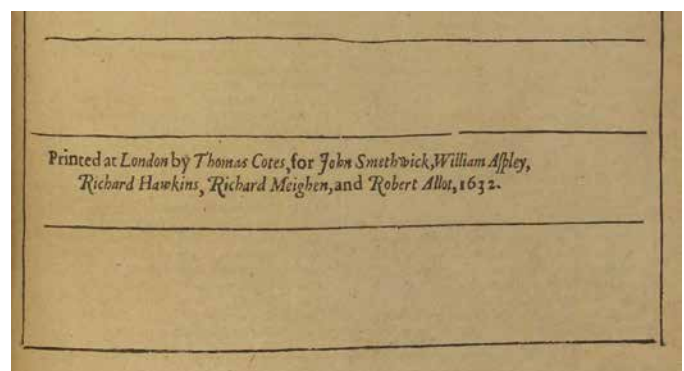 Printed at London by Thomas Cotes, for John Smethwick, William Aſpley,
Richard Hawkins, Richard Meighen, and Robert Allot, 1632.